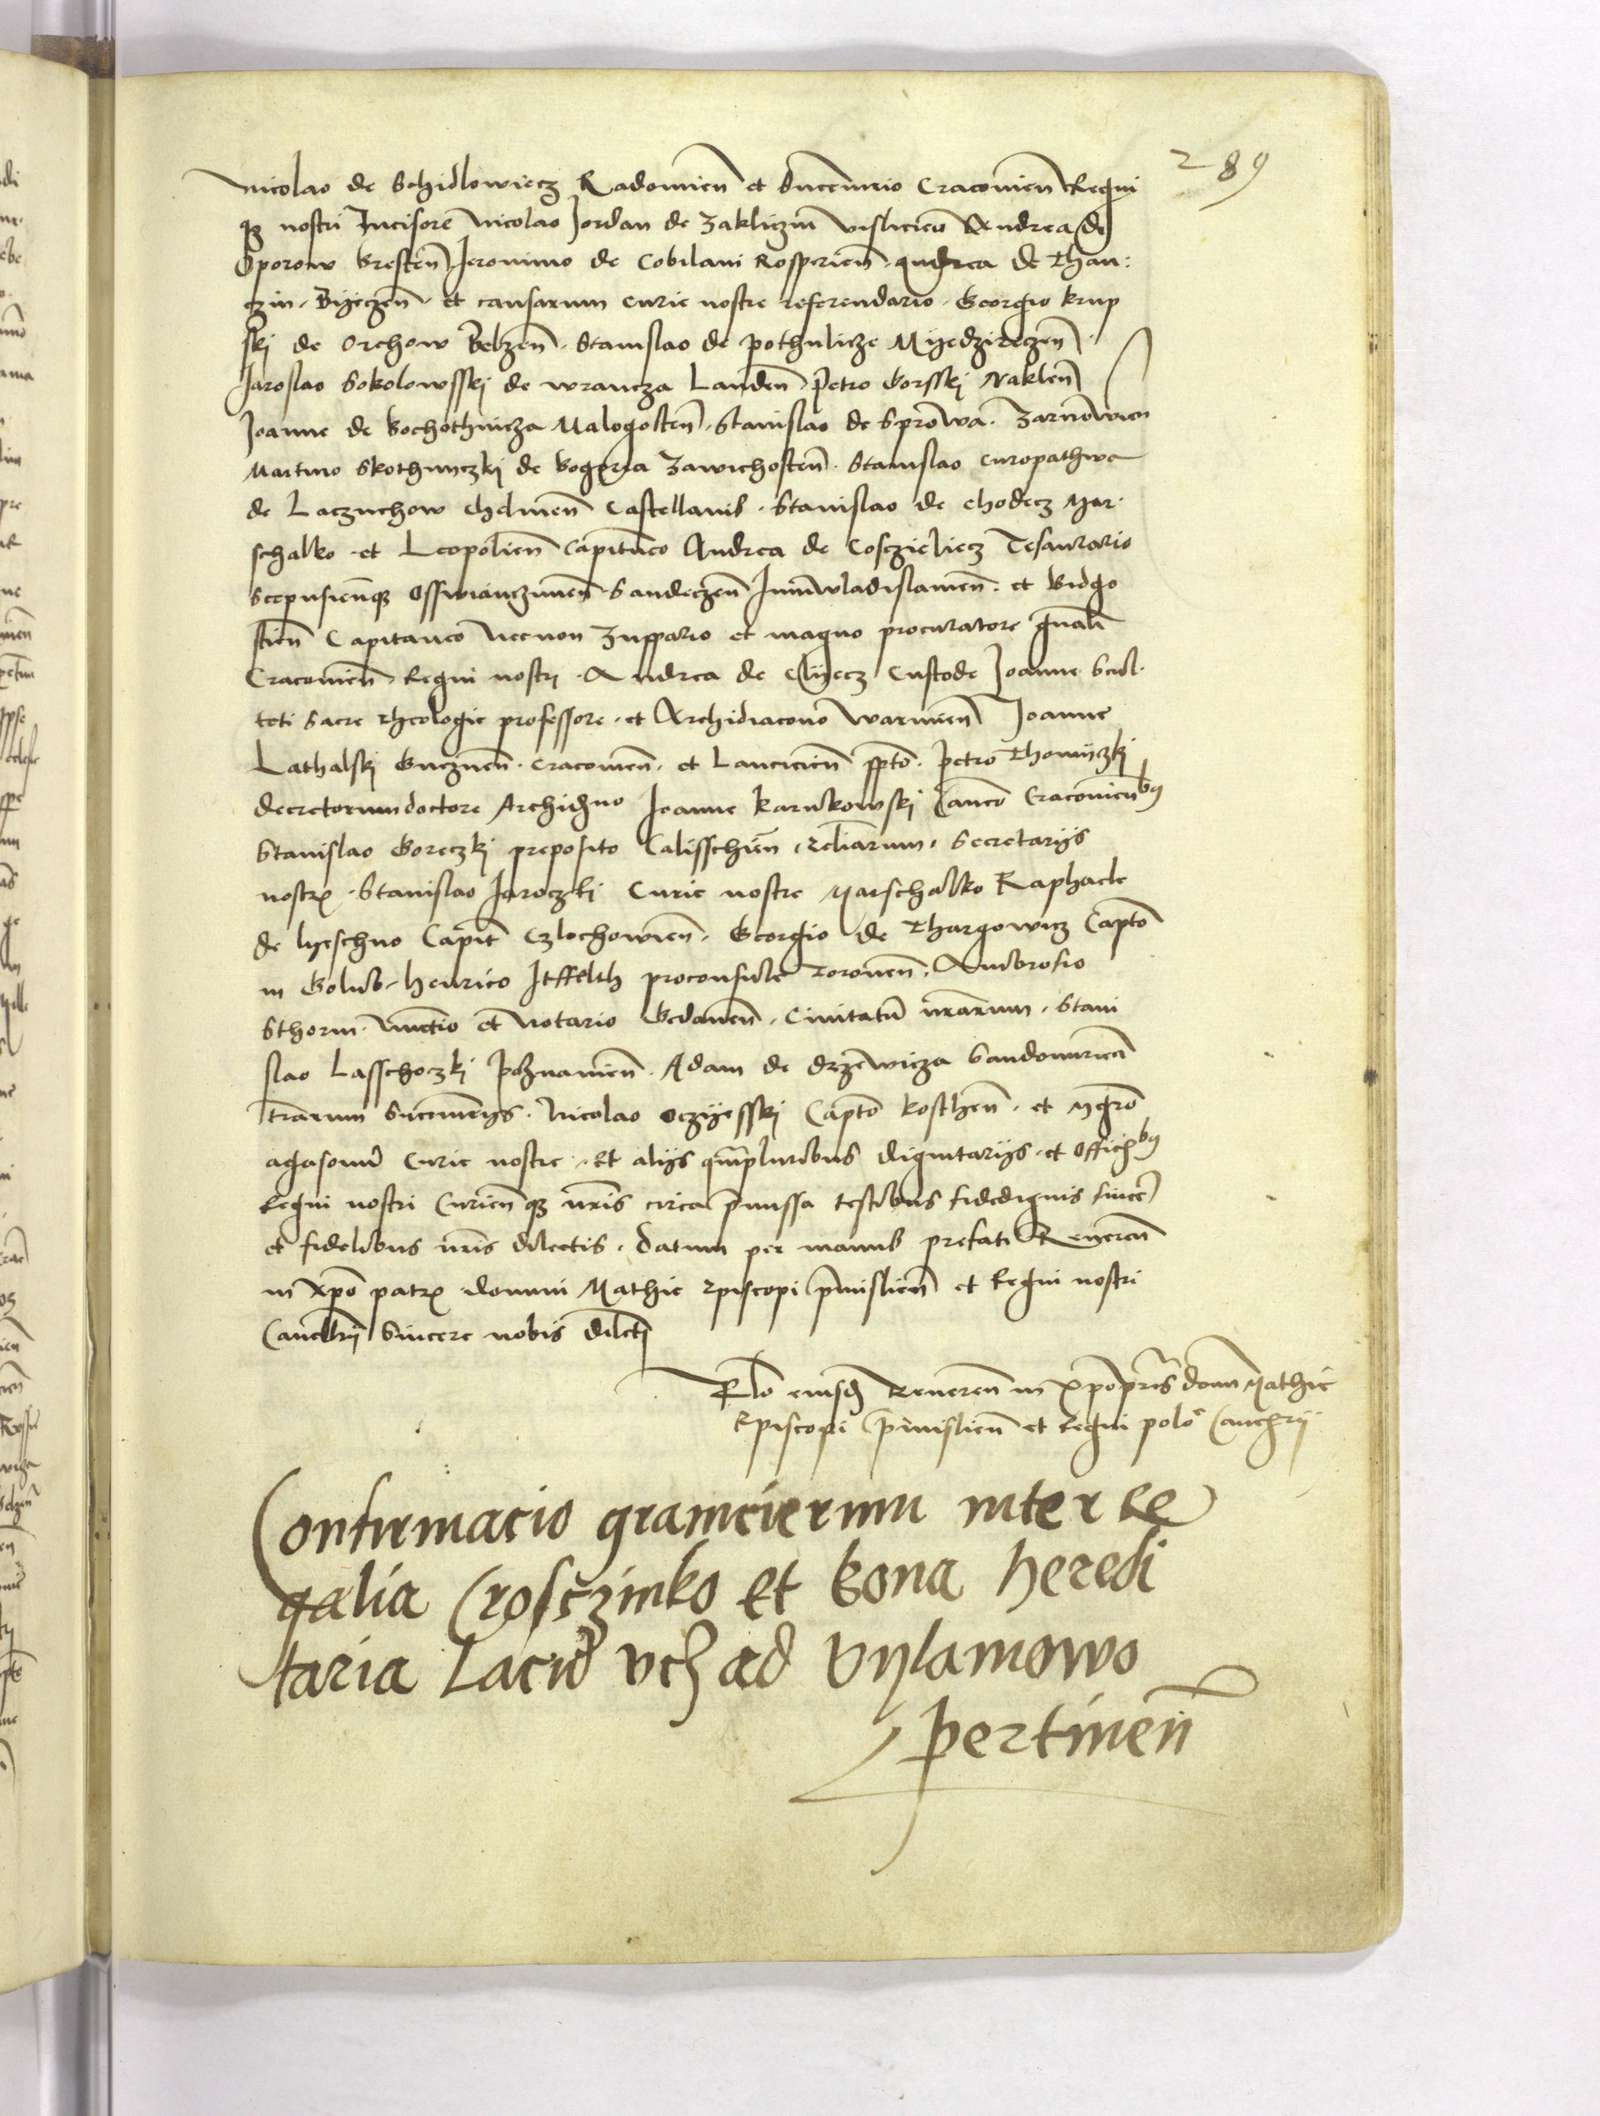 289
Nicolao de Schidlowiecz Radomien et Succamerario Cracovien Regni
qz nostri Incisore Nicolao Jordan de Zakliczin vislicien Andrea de
Oporow Bresten Jeronimo de Cobilani Rosperien Andrea de Than:
czin Byeczen et causarum curie nostre referendario Georgio krup
skj de Orchow Belzen Stanislao de pothulicze Myedzireczen
Jaroslao Sokolowsskj de wrancza Landen petro Gorsskj Naklen
Joanne de Bochothnicza Malogosten Stanislao de Sprowa Zarnowien
Martino Skothniczkj de Bogoria Zawichosten Stanislao curopathwa
de Lacznchow Chelmen Castellanis Stanislao de Chodecz Mar
schalko et Leopolien Capitaneo Andrea de Cosczieliecz Tesaurario
Scepusienqz Osswianczimen Sandeczen Juniwladislamen et Bidgo
stien Capitaneo Necnon Zuppario et magno procuratore gnali
Cracovien Regni nostri Andrea de Custode Joanne Scul
teti Sacre theologie professore et Archidiacono Warmien Joanne
Lathalskj Gneznen Cracovien et Lancicien ppto petro Thomyczkj
decretorum doctore Archidno Joanne karnkowskj Canco Cracovienbus
Stanislao Goreczkj preposito Calisschien Ecliarum Secretarijs
nostris Stanislao Jaroczkj Curie nostre Marschalko Raphaele
de lyeschno Capit Czlochowien Georgio de Thargowicz Capto
in Golub henrico Itffelth proconsule Toronen Ambrosio
Sthorm nuctio et Notario Gedanen Civitatum nrarum Stani
slao Lasschoczkj Poznanien Adam de drzewicza Sandomirien
trarum Succamerijs Nicolao Oczyesskj Capto kosthen et mgro
agasonum Curie nostre Et alijs qmpluribus dignitarijs et Officibus
Regni nostri Curienqz nris circa pmissa testibus fidedignis sincere
et fidelibus nris dilectis Datum per manus prefati Reveren
in xpo patris domini Mathie Episcopi pmislien et Regni nostri
Cancellarij Sincere nobis dilecti
Rlo eiusd Reveren in xpo pris domini Mathie
Episcopi pmislien et Regni polo Cancellarij
Confirmacio granicierum inter re
galia Crosczinko et bona heredi
taria Lacus vch ad Vylamowo
pertinen